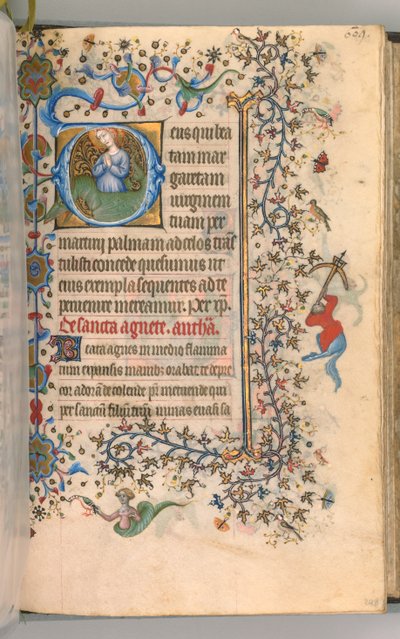 Deus qui bea
tam mar
garetam
uirginem
tuam per
martirij palmam ad celos trās
tulisti concede quesumus ut
eius exempla sequentes ad te
peruenire mereamur. Per xp̄.
De sancta agnete. antħa.
Beata agnes in medio flamma
rum expansis manibꝫ orabat te depre
cor adorāde colende pr̄ metuende qui
per sanctū filium tuū minas euasi sa